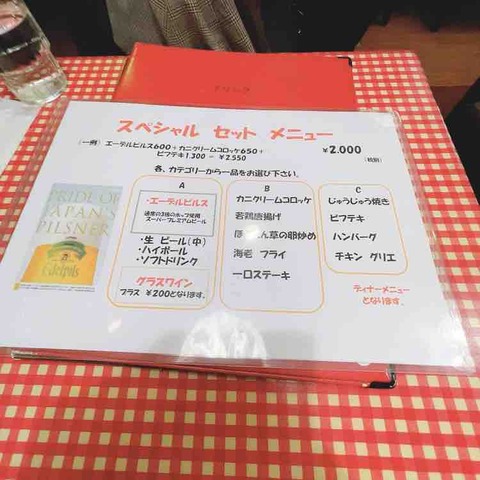 ドリンク
スペシャル セット メニュー
(一例) エーデルピルス600+カニクリームコロッケ650+
ビフテキ1.300 = ¥2.550
¥2.000
(税別)
各、カテゴリーから一品をお選び下さい。
A
・エーデルピルス
通常の3倍のホップ使用
スーパープレミアムビール
・生 ビール(中)
・ハイボール
・ソフトドリンク
グラスワイン
プラス ¥200となります。
B
カニクリームコロッケ
若鶏唐揚げ
ほうれん草の卵炒め
海老 フライ
一口ステーキ
C
じゅうじゅう焼き
ビフテキ
ハンバーグ
チキン グリエ
ディナーメニュー
となります。
PRIDE OF
JAPAN'S
PILSNER
Edelpils